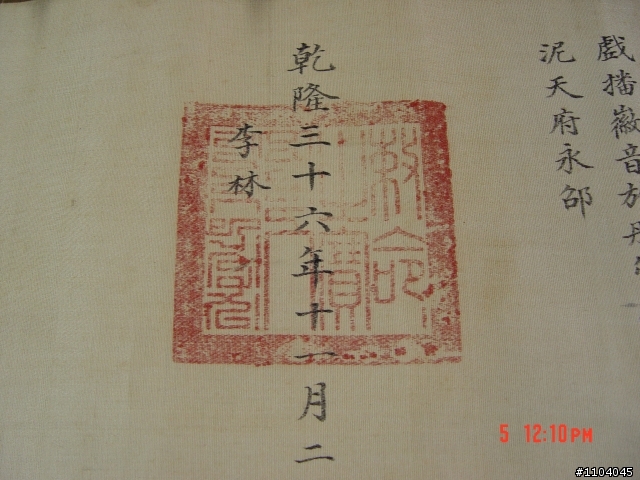 戲播徽音於丹
泥天府永邵
乾隆三十六年十一月二
李林
敕命之寶
5 12:10PM
#1104045